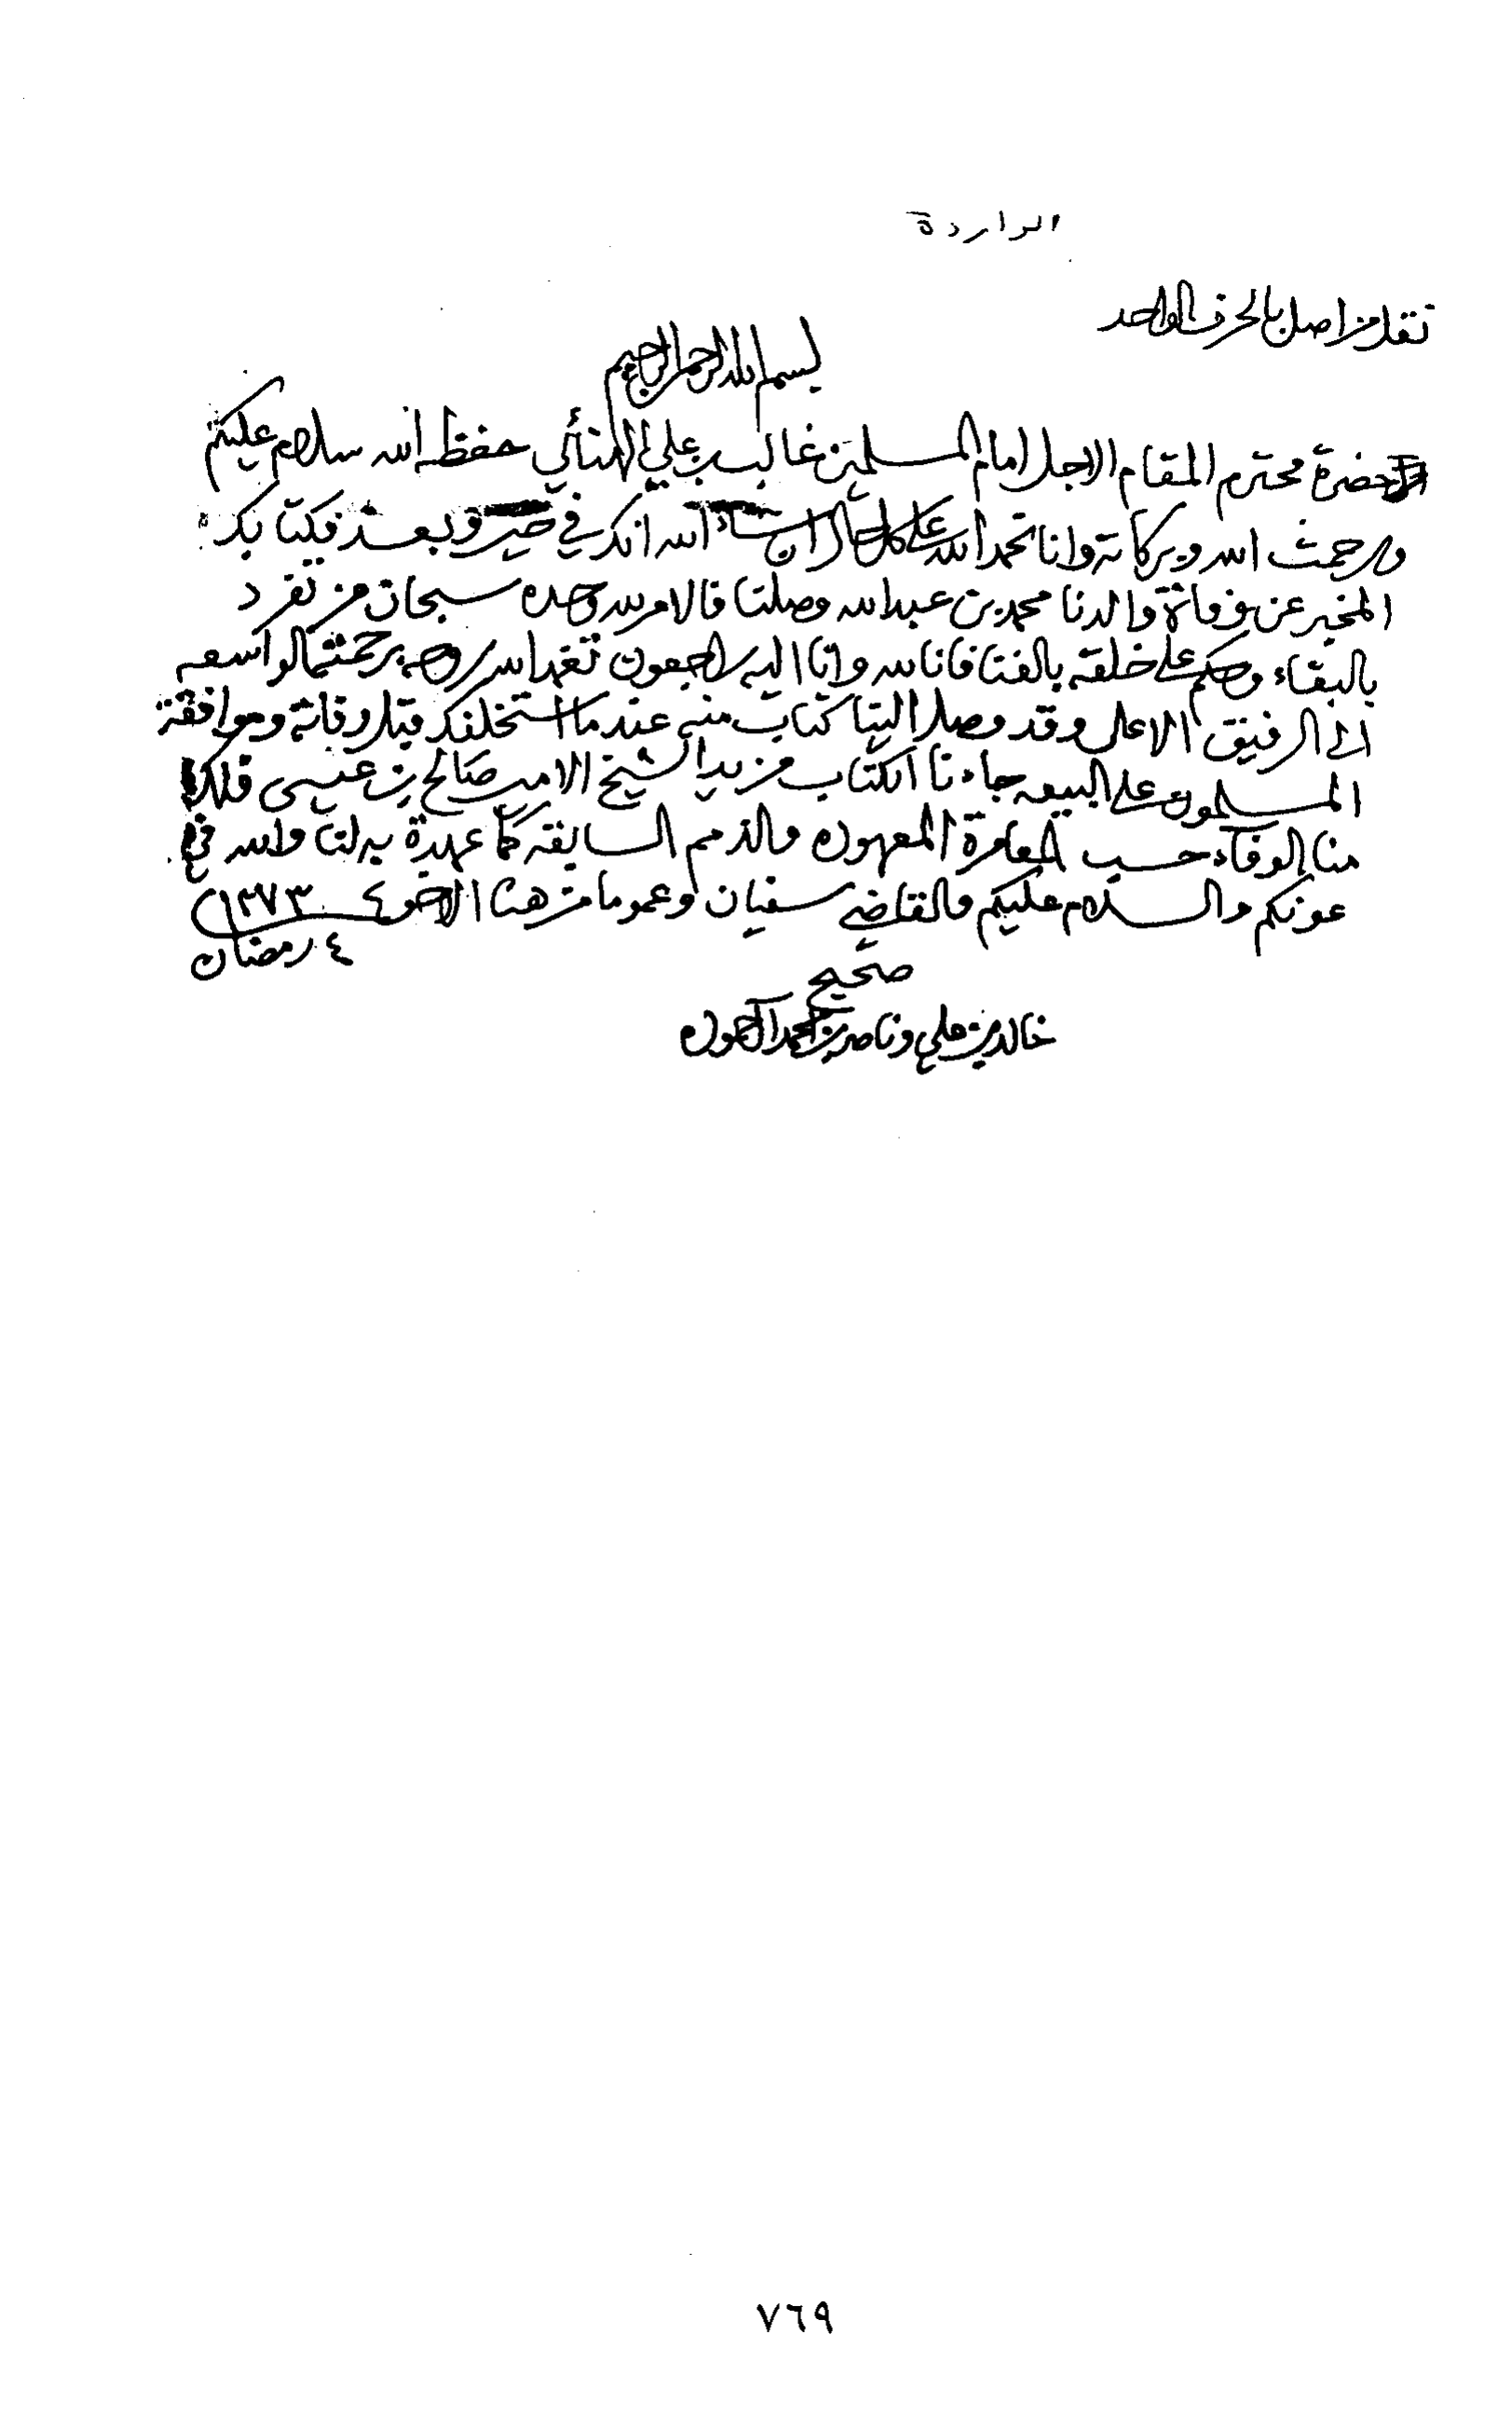 الواردة
نقل من اصل بالحرف الواحد
بسم الله الرحمن الرحيم
حضرة محترم المقام الاجل امام المسلمين غالب بن علي الهنائي حفظه الله سلام عليكم
ورحمت الله وبركاته وانا نحمد الله على كل حال ان شاء الله انك في خير وبعد فكتابك
المخبر عن وفاة والدنا محمد بن عبدالله وصلنا فالامر لله وحده سبحان من تفرد
بالبقاء وحكم على خلقه بالفنا فانا لله وانا اليه راجعون تغمد الله روحه برحمته الواسعه
الى الرفيق الاعلى وقد وصل الينا كتاب منه عندما استخلفك قبل وفاته وموافقة
المسلمون على البيعه جاءنا الكتاب من يد الشيخ الامير صالح بن عيسى فلك
منا الوفاء حسب المعهوده والذمم السابقه كما عهدة يد لنا والله في
عونكم والسلام عليكم والقاضي سفيان وعموما من هنا الاخوة ١٣٧٣
٤ رمضان
صحيح
خالد بن علي وناصر بن حمد
٧٦٩